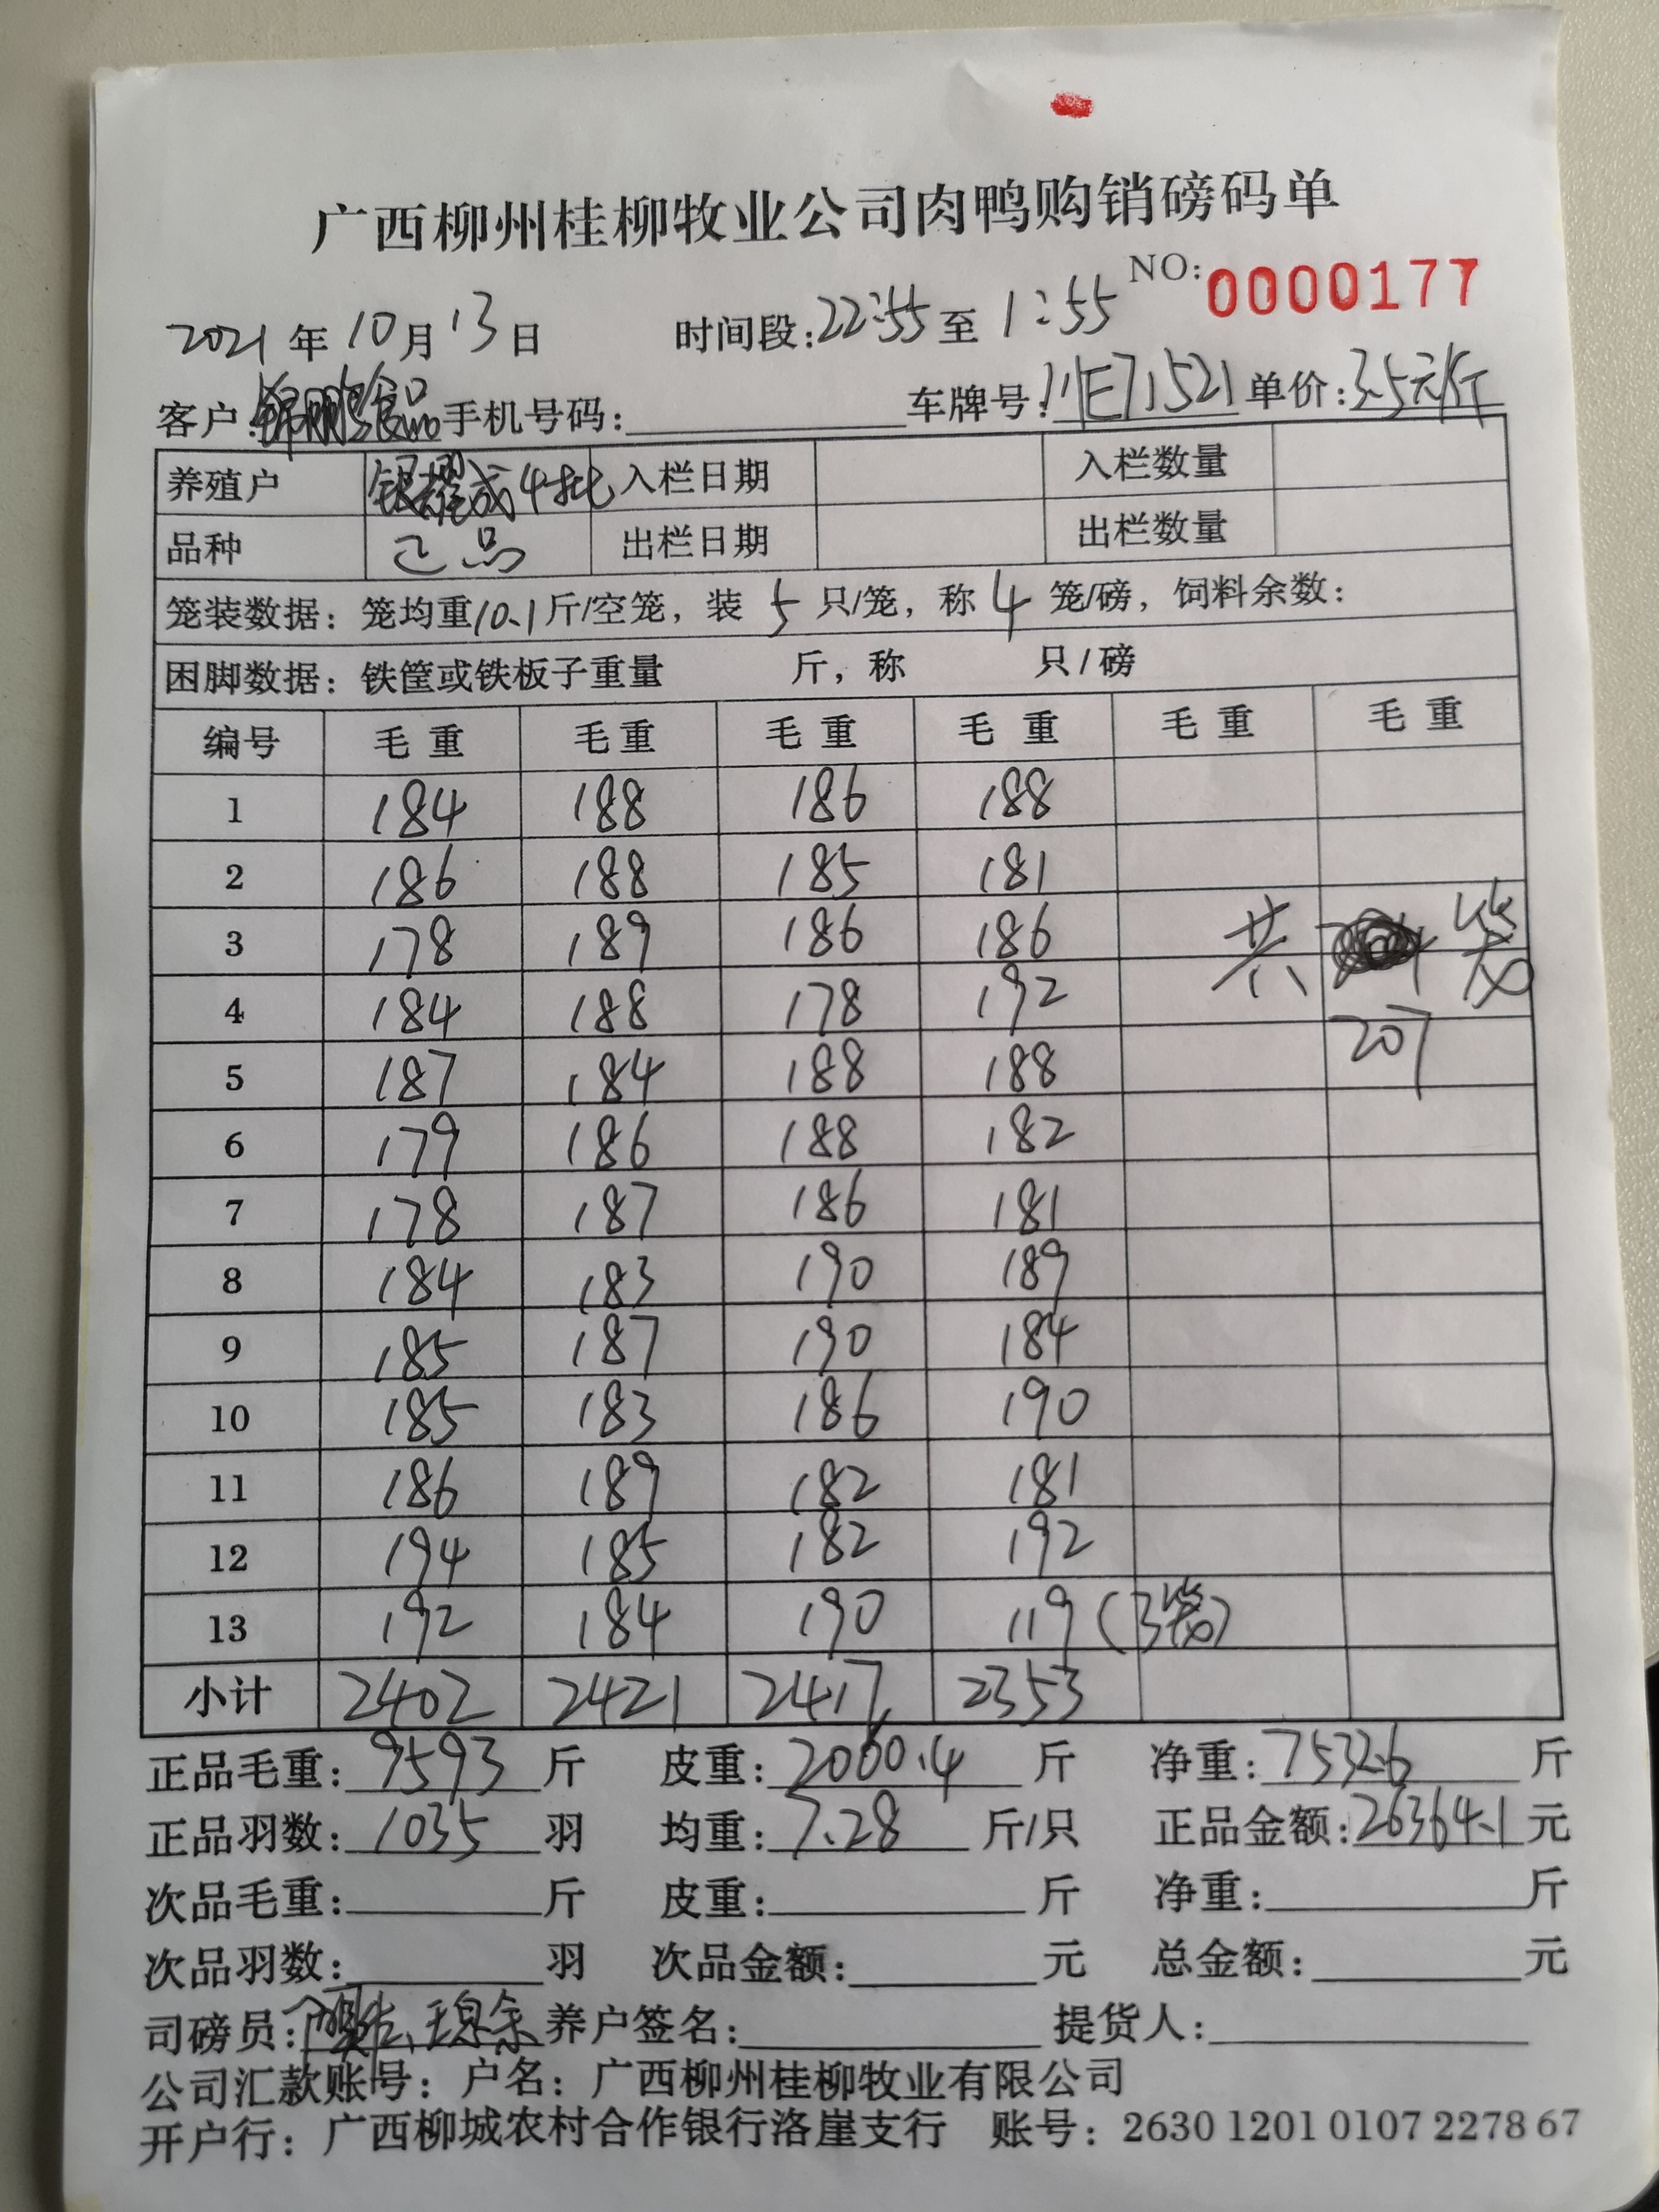 广西柳州桂柳牧业公司肉鸭购销磅码单
NO: 0000177
2021年10月13日 时间段:22:55至1:55
客户:锦鹏食品 手机号码: 车牌号:川E71521 单价:3.5元/斤
养殖户 银耀成4批 入栏日期 入栏数量
品种 乙品 出栏日期 出栏数量
笼装数据：笼均重10.1斤/空笼，装5只/笼，称4笼/磅，饲料余数：
困脚数据：铁筐或铁板子重量 斤，称 只/磅
编号 毛重 毛重 毛重 毛重 毛重 毛重
1 184 188 186 188
2 186 188 185 181
3 178 189 186 186 共 笼
4 184 188 178 192 207
5 187 184 188 188
6 179 186 188 182
7 178 187 186 181
8 184 183 190 189
9 185 187 190 184
10 185 183 186 190
11 186 189 182 181
12 194 185 182 192
13 192 184 190 119(3笼)
小计 2402 2421 2417 2353
正品毛重:9593斤 皮重:2060.4斤 净重:7532.6斤
正品羽数:1035羽 均重:7.28斤/只 正品金额:26364.1元
次品毛重: 斤 皮重: 斤 净重: 斤
次品羽数: 羽 次品金额: 元 总金额: 元
司磅员: 养户签名: 提货人:
公司汇款账号：户名：广西柳州桂柳牧业有限公司
开户行：广西柳城农村合作银行洛崖支行 账号：2630 1201 0107 2278 67